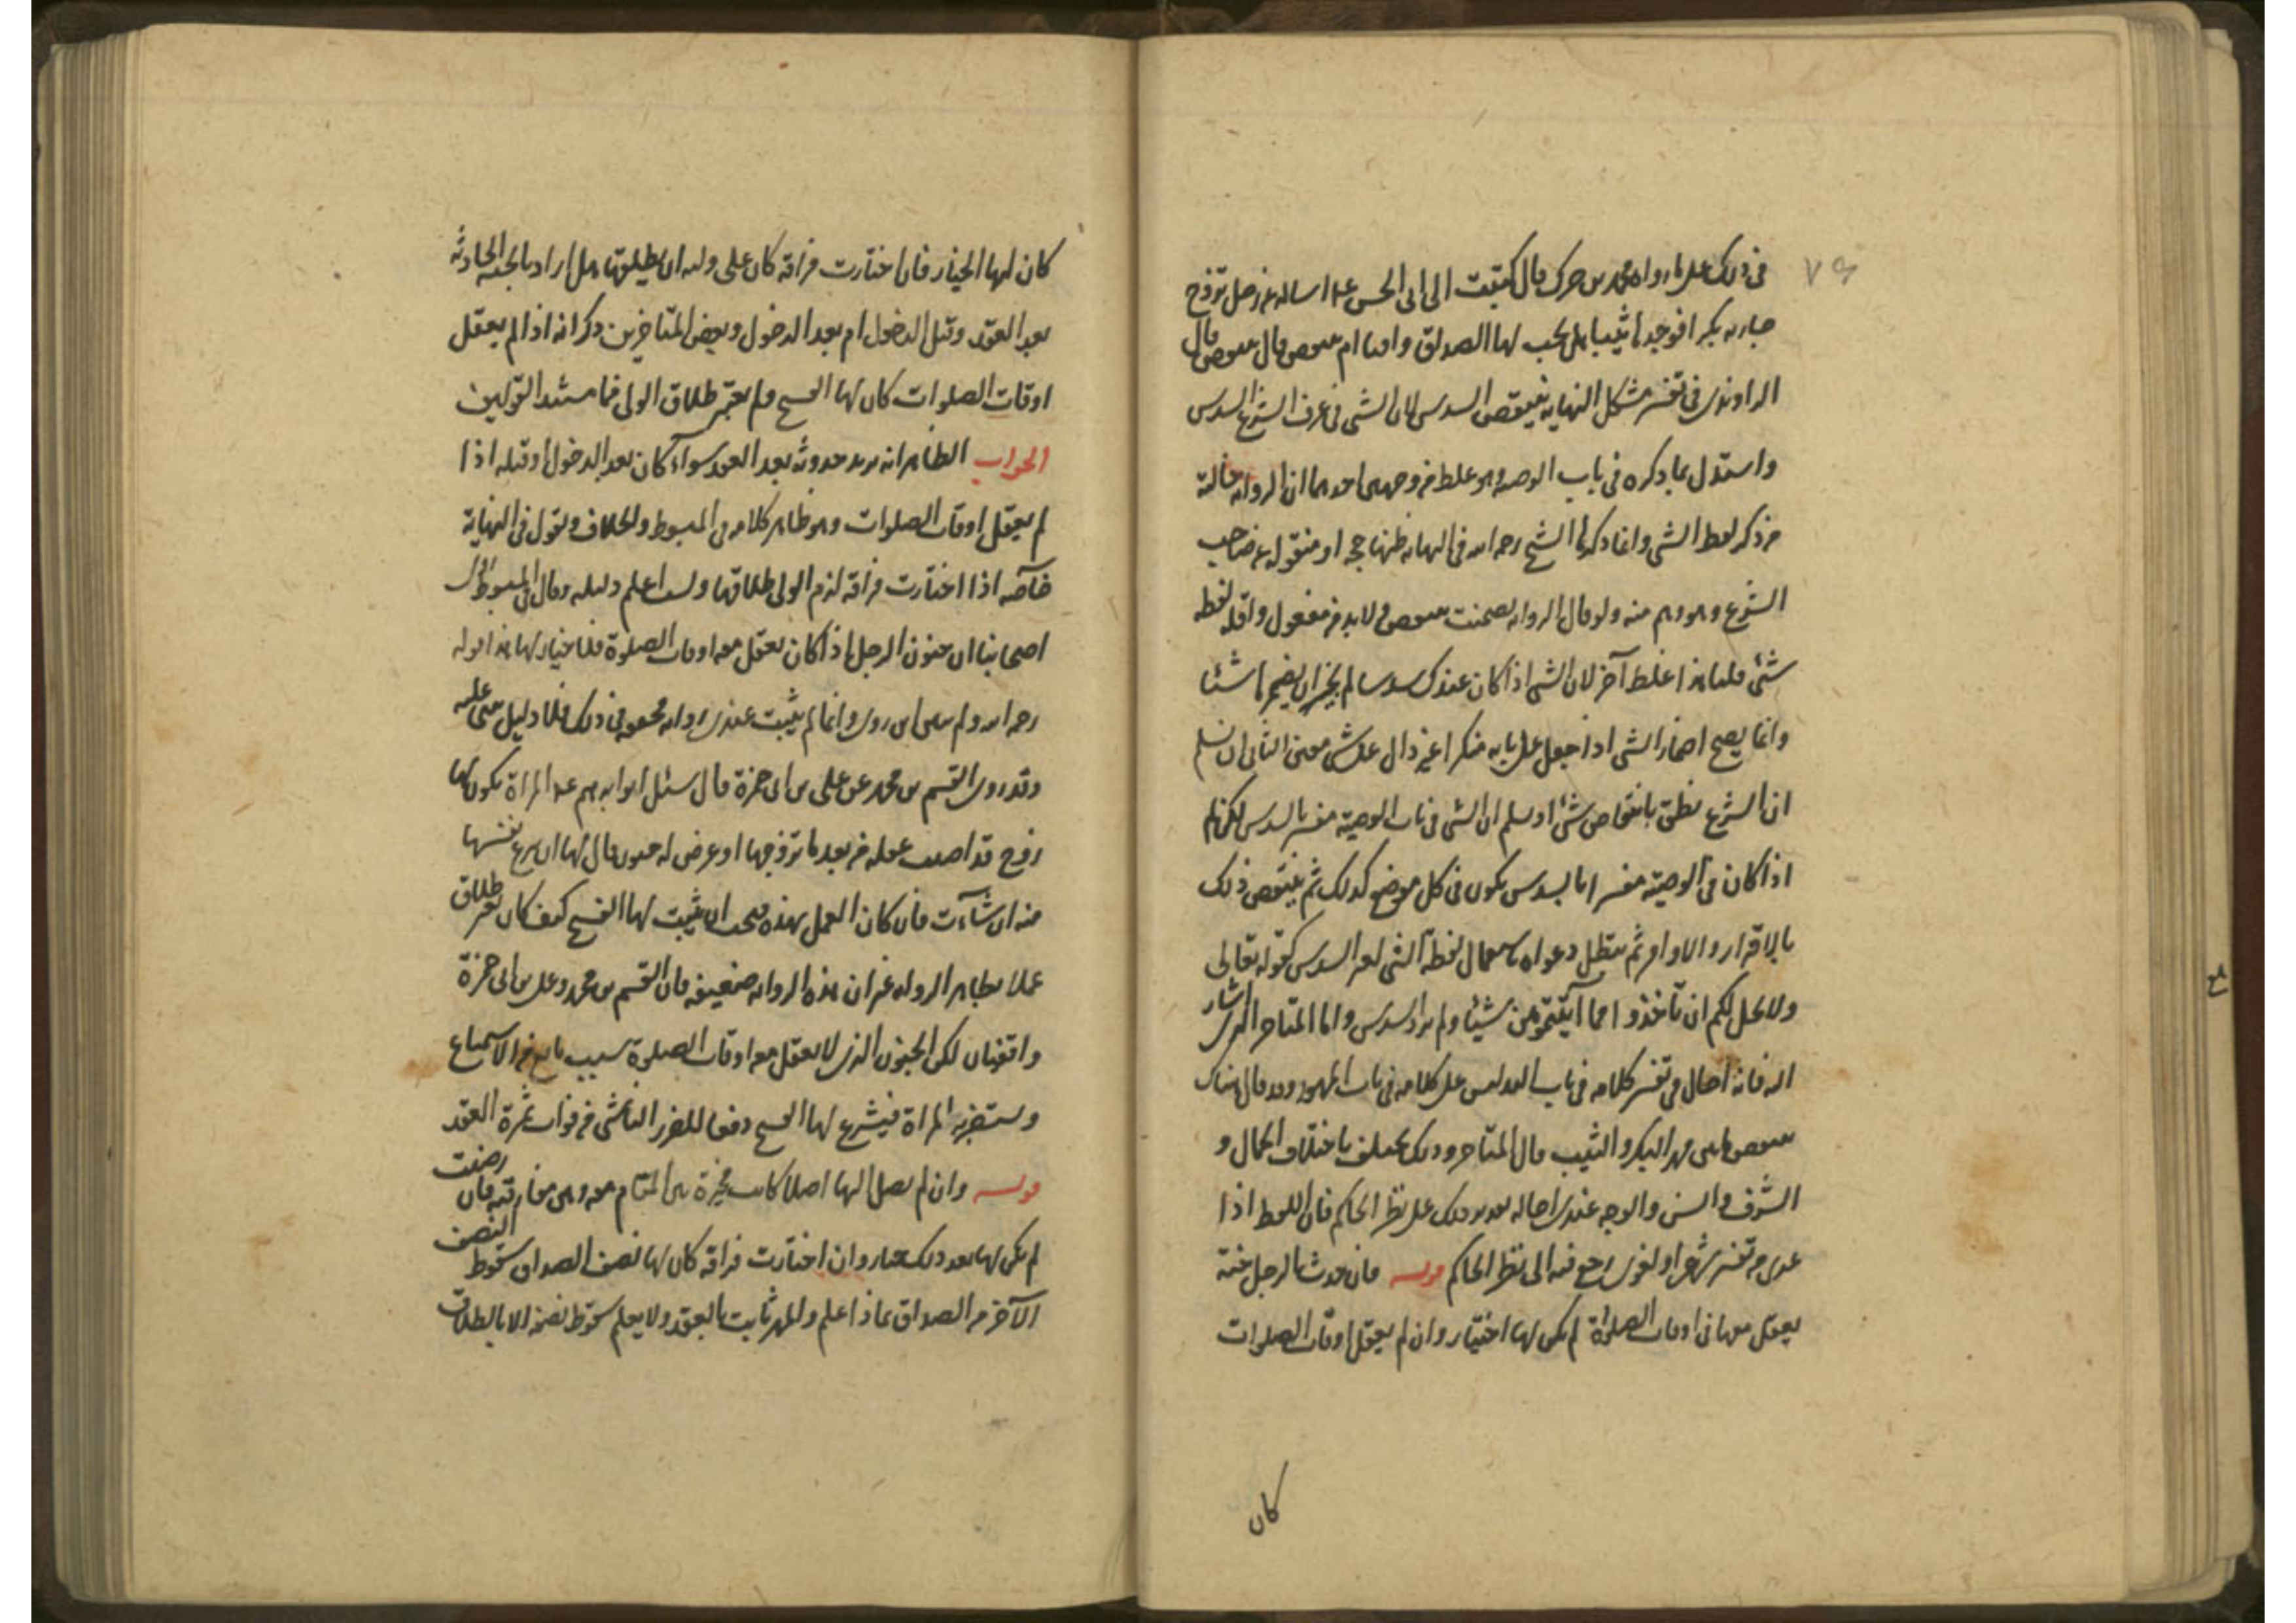 في ذلك على ما رواه محمد بن جزك قال كتبت الى ابى الحسن ع اساله عن رجل تزوج
جاريه بكرا فوجدها ثيبا هل يجب لها الصداق وافيا ام ينتقص قال ينتقص قال
الراوندى في تفسير مشكل النهايه ينتقص السدس لان الشى في عرف الشرع السدس
واستدل بما ذكره في باب الوصيه وهو غلط من وجهين احدهما ان الروايه خالية
من ذكر لفظ الشى وانما ذكرها الشيخ رحمه الله في النهايه فظنها حجه او منقوله عن صاحب
الشرع وهو وهم منه ولو قال الروايه تضمنت ينتقص ولا بد من مفعول واقله لفظه
شئ قلنا هذا غلط آخر لان الشى اذا كان عندك سدسا لم يجز ان يضمر هاهنا
وانما يصح اضمار الشى اذا جعل على بابه منكرا غير دال على شى معين الثانى ان نسلم
ان الشرع نطق بانتقاص شئ او سلم ان الشى في باب الوصية مفسر بالسدس لكن لم
اذا كان في الوصية مفسرا بالسدس يكون في كل موضع كذلك ثم ينتقض ذلك
بالاقرار والاوامر ثم تبطل دعواه باستعمال لفظة الشى لغير السدس كقوله تعالى
ولا يحل لكم ان تاخذوا مما آتيتموهن شيئا ولم يرد السدس واما المتاخر الذى اشار
اليه فانه احال في تفسير كلامه في باب التدليس على كلامه في باب المهور وقد قال هناك
ينتقص ما بين مهر البكر والثيب قال المتاخر وذلك يختلف باختلاف الجمال و
الشرف والسن والوجه عندى احاله تقدير ذلك على نظر الحاكم فان اللفظ اذا
عرى من تفسير شرعى او لغوى رجع فيه الى نظر الحاكم قوله فان حدث بالرجل جنة
يعقل معها في اوقات الصلوة لم يكن لها اختيار وان لم يعقل اوقات الصلوات
كان
كان لها الخيار فان اختارت فراقه كان على وليه ان يطلقها هل اراد بالجنه الحادثة
بعد العقد وقبل الدخول ام بعد الدخول وبعض المتاخرين ذكر انه اذا لم يعقل
اوقات الصلوات كان لها الفسخ ولم يعتبر طلاق الولى فما مستند القولين
الجواب الظاهر انه يريد حدوثه بعد العقد سواء كان بعد الدخول او قبله اذا
لم يعقل اوقات الصلوات وهو ظاهر كلامه في المبسوط والخلاف ويقول في النهاية
خاصه اذا اختارت فراقه لزم الولى طلاقها ولست اعلم دليله وقال في المبسوط
اصحابنا ان جنون الرجل اذا كان يعقل معه اوقات الصلوة فلا خيار لها هذا قوله
رحمه الله ولم ينسى ان روى وانما لم يثبت عندى روايه محققه في ذلك فلا دليل عليه
وقد روى القسم بن محمد عن على بن ابى حمزة قال سئل ابو ابرهيم ع عن المراة يكون لها
زوج قد اصيب عقله من بعد ما تزوجها او عرض له جنون قال لها ان تنزع نفسها
منه ان شاءت فان كان العمل بهذه فيجب ان يثبت لها الفسخ كيف كان بغير طلاق
عملا بظاهر الروايه غير ان هذه الروايه ضعيفه فان القسم بن محمد وعلى بن ابى حمزة
واقفيان لكن الجنون الذى لا يعقل معه اوقات الصلوة سبب مانع من الاستمتاع
وتستضر به المراة فيشرع لها الفسخ دفعا للضرر الناشى من فوات ثمرة العقد
قوله وان لم يصل اليها اصلا كانت مخيرة بين المقام معه وبين مفارقته فان رضيت
لم يكن لها بعد ذلك خيار وان اختارت فراقه كان لها نصف الصداق سقوط النصف
الآخر من الصداق بماذا اعلم والمهر ثابت بالعقد ولا يعلم سقوط نصفه الا بالطلاق